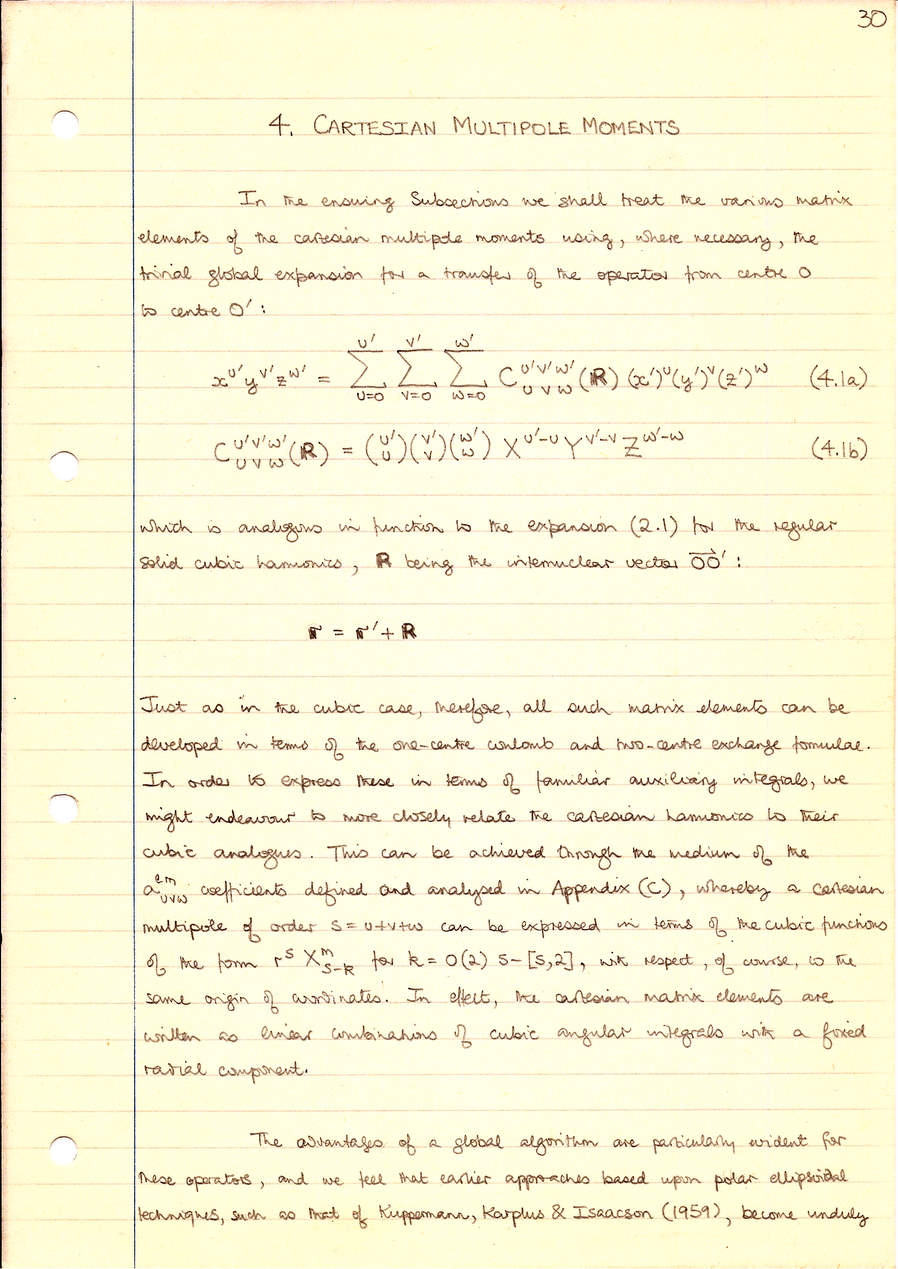 30
4. CARTESIAN MULTIPOLE MOMENTS
In the ensuing Subsections we shall treat the various matrix
elements of the cartesian multipole moments using, where necessary, the
trivial global expansion for a transfer of the operator from centre O
to centre O′ :
x^u′ y^v′ z^w′ = ∑_{u=0}^{u′} ∑_{v=0}^{v′} ∑_{w=0}^{w′} C^{u′v′w′}_{u v w}(ℝ) (x′)^u (y′)^v (z′)^w (4.1a)
C^{u′v′w′}_{u v w}(ℝ) = (u′ u)(v′ v)(w′ w) X^{u′-u} Y^{v′-v} Z^{w′-w} (4.1b)
which is analogous in function to the expansion (2.1) for the regular
solid cubic harmonics, ℝ being the internuclear vector OO′ :
r = r′ + ℝ
Just as in the cubic case, therefore, all such matrix elements can be
developed in terms of the one-centre coulomb and two-centre exchange formulae.
In order to express these in terms of familiar auxiliary integrals, we
might endeavour to more closely relate the cartesian harmonics to their
cubic analogues. This can be achieved through the medium of the
a^{em}_{uvw} coefficients defined and analysed in Appendix (C), whereby a cartesian
multipole of order s = u+v+w can be expressed in terms of the cubic functions
of the form r^s X^m_{s-k} for k = 0(2) s-[s,2], with respect, of course, to the
same origin of coordinates. In effect, the cartesian matrix elements are
written as linear combinations of cubic angular integrals with a fixed
radial component.
The advantages of a global algorithm are particularly evident for
these operators, and we feel that earlier approaches based upon polar ellipsoidal
techniques, such as that of Kuppermann, Karplus & Isaacson (1959), become unduly